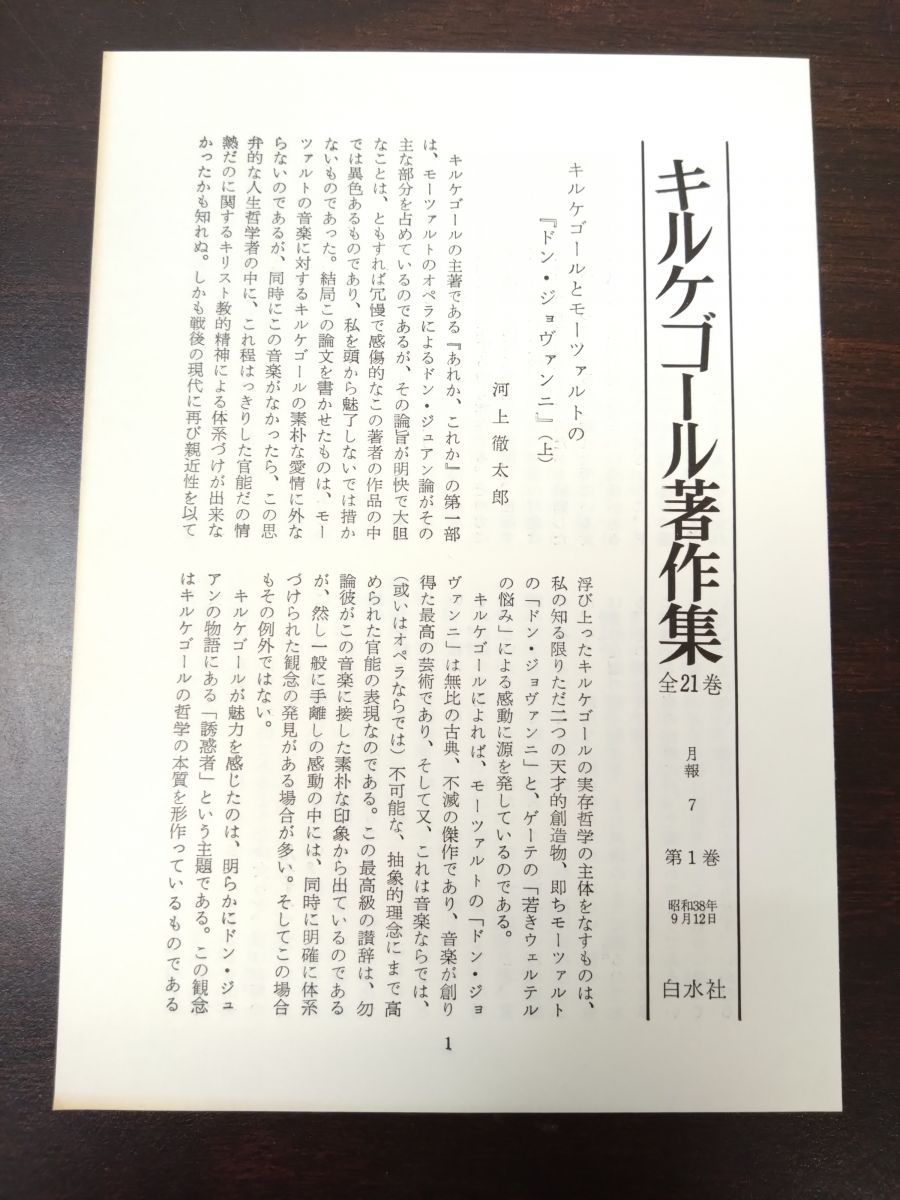 キルケゴール著作集
全21巻
月報 7
第1巻
昭和38年
9月12日
白水社
キルケゴールとモーツァルトの
『ドン・ジョヴァンニ』(上)
河上徹太郎
キルケゴールの主著である『あれか、これか』の第一部
は、モーツァルトのオペラによるドン・ジュアン論がその
主な部分を占めているのであるが、その論旨が明快で大胆
なことは、ともすれば冗慢で感傷的なこの著者の作品の中
では異色あるものであり、私を頭から魅了しないでは措か
ないものであった。結局この論文を書かせたものは、モー
ツァルトの音楽に対するキルケゴールの素朴な愛情に外な
らないのであるが、同時にこの音楽がなかったら、この思
弁的な人生哲学者の中に、これ程はっきりした官能だの情
熱だのに関するキリスト教的精神による体系づけが出来な
かったかも知れぬ。しかも戦後の現代に再び親近性を以て
浮び上ったキルケゴールの実存哲学の主体をなすものは、
私の知る限りただ二つの天才的創造物、即ちモーツァルト
の「ドン・ジョヴァンニ」と、ゲーテの「若きウェルテル
の悩み」による感動に源を発しているのである。
キルケゴールによれば、モーツァルトの「ドン・ジョ
ヴァンニ」は無比の古典、不滅の傑作であり、音楽が創り
得た最高の芸術であり、そして又、これは音楽ならでは、
(或いはオペラならでは)不可能な、抽象的理念にまで高
められた官能の表現なのである。この最高級の讃辞は、勿
論彼がこの音楽に接した素朴な印象から出ているのである
が、然し一般に手離しの感動の中には、同時に明確に体系
づけられた観念の発見がある場合が多い。そしてこの場合
もその例外ではない。
キルケゴールが魅力を感じたのは、明らかにドン・ジュ
アンの物語にある「誘惑者」という主題である。この観念
はキルケゴールの哲学の本質を形作っているものである
1